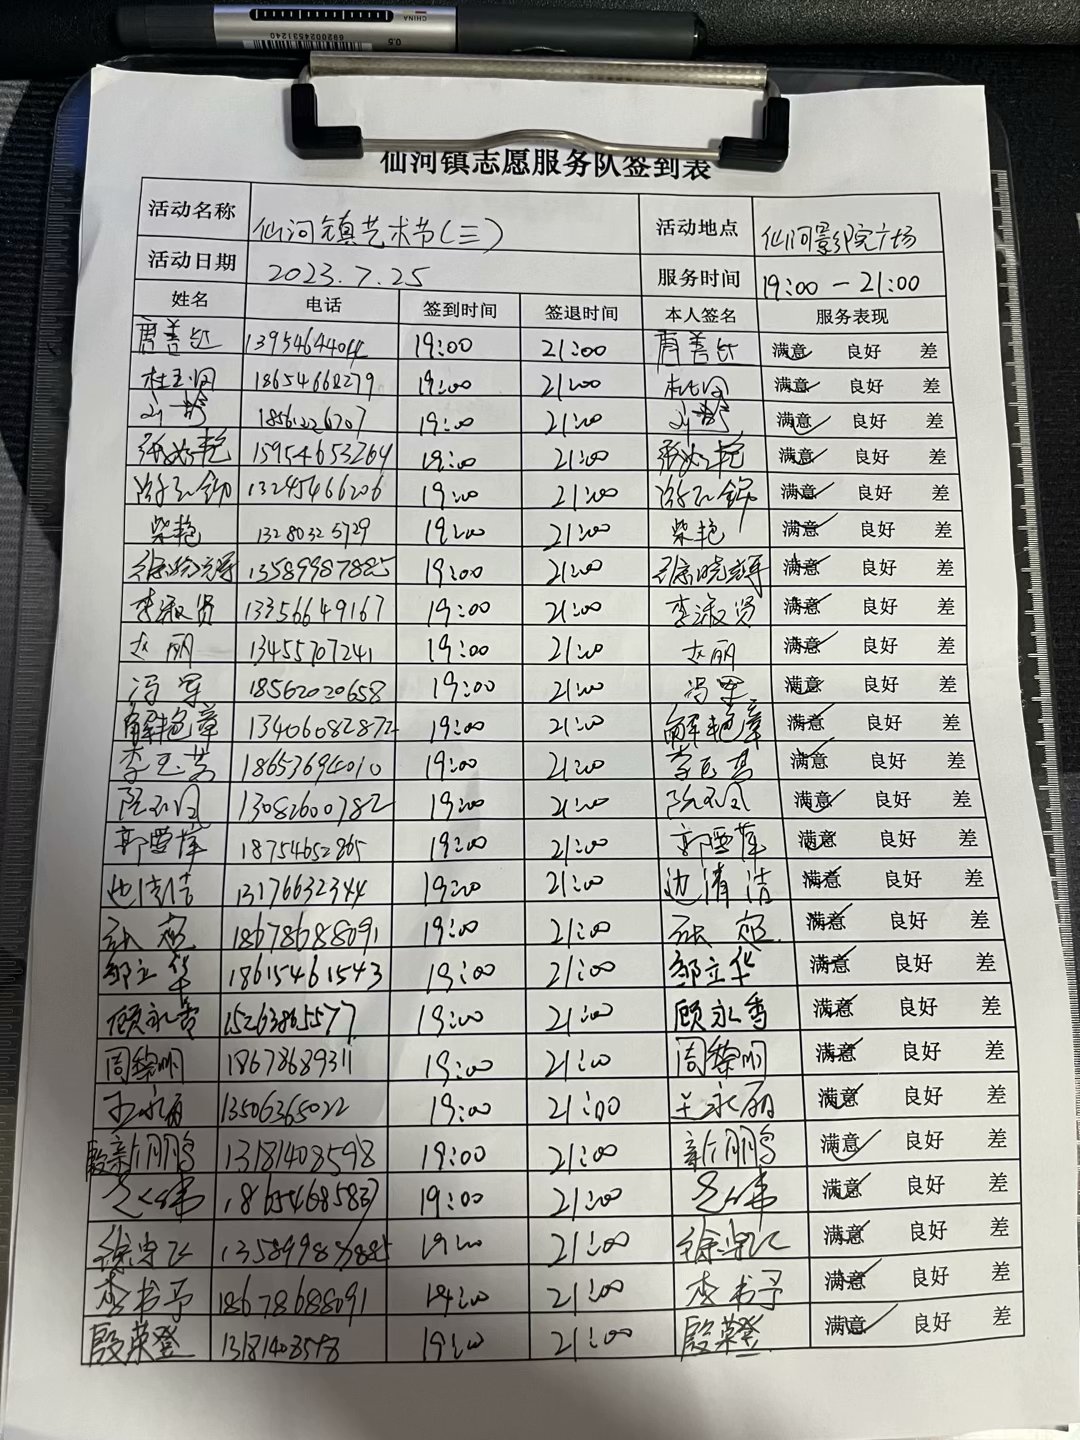 CHINA
0.5
6920024531240
仙河镇志愿服务队签到表
活动名称 仙河镇艺术节(三) 活动地点 仙河影剧院广场
活动日期 2023.7.25 服务时间 19:00-21:00
姓名 电话 签到时间 签退时间 本人签名 服务表现
唐善红 13954644044 19:00 21:00 唐善红 满意 良好 差
18654668279 19:00 21:00 满意 良好 差
18561226707 19:00 21:00 满意 良好 差
15954653264 19:00 21:00 满意 良好 差
13245466206 19:00 21:00 满意 良好 差
柴艳 13280325729 19:00 21:00 柴艳 满意 良好 差
13589987885 19:00 21:00 满意 良好 差
李淑贤 13356649167 19:00 21:00 李淑贤 满意 良好 差
赵丽 13455707241 19:00 21:00 赵丽 满意 良好 差
冯军 18562020658 19:00 21:00 冯军 满意 良好 差
解艳章 13406082872 19:00 21:00 解艳章 满意 良好 差
18653694010 19:00 21:00 满意 良好 差
13082600782 19:00 21:00 满意 良好 差
郭雪萍 18754652865 19:00 21:00 郭雪萍 满意 良好 差
边清洁 13176632344 19:00 21:00 边清洁 满意 良好 差
18678688091 19:00 21:00 满意 良好 差
邹立华 18615461543 19:00 21:00 邹立华 满意 良好 差
顾永香 15263865577 19:00 21:00 顾永香 满意 良好 差
周黎明 18678689311 19:00 21:00 周黎明 满意 良好 差
王永丽 13506365022 19:00 21:00 王永丽 满意 良好 差
殷新鹏 13181408598 19:00 21:00 新鹏 满意 良好 差
18654685837 19:00 21:00 满意 良好 差
13589988885 19:00 21:00 满意 良好 差
李书予 18678688091 19:00 21:00 李书予 满意 良好 差
殷荣登 13181408598 19:00 21:00 殷荣登 满意 良好 差